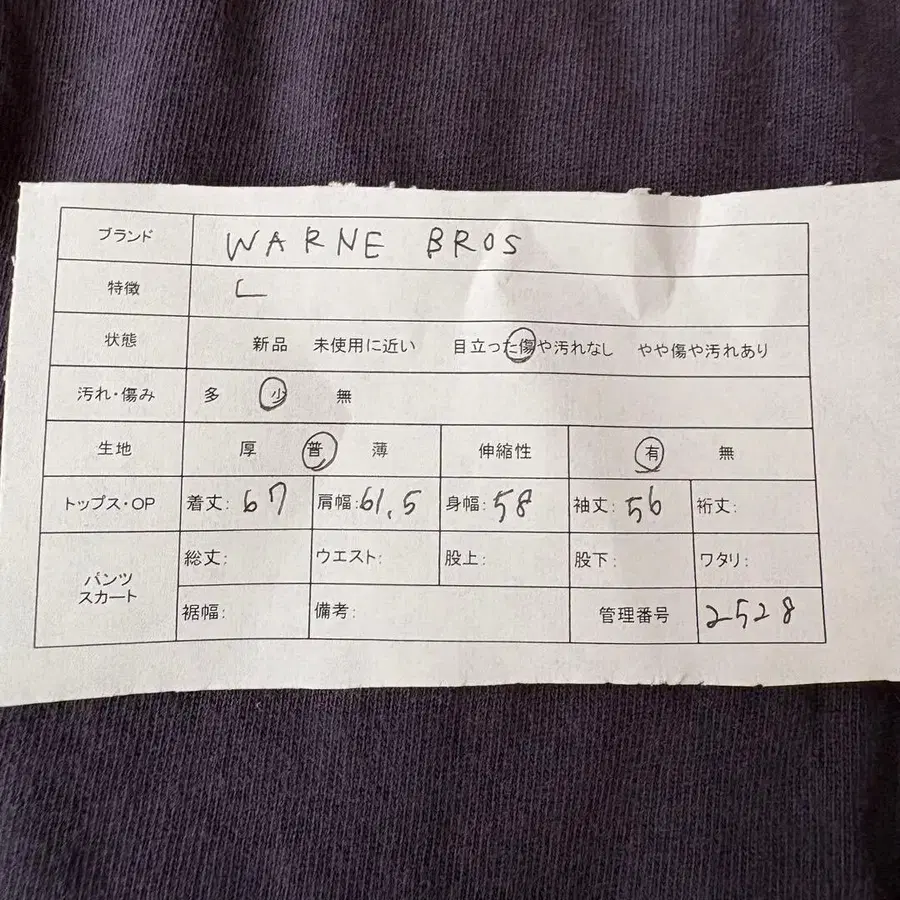 ブランド WARNE BROS
特徴 L
状態 新品 未使用に近い 目立った傷や汚れなし やや傷や汚れあり
汚れ・傷み 多 少 無
生地 厚 普 薄 伸縮性 有 無
トップス・OP 着丈: 67 肩幅: 61.5 身幅: 58 袖丈: 56 裄丈:
パンツ
スカート
総丈: ウエスト: 股上: 股下: ワタリ:
裾幅: 備考: 管理番号 2528